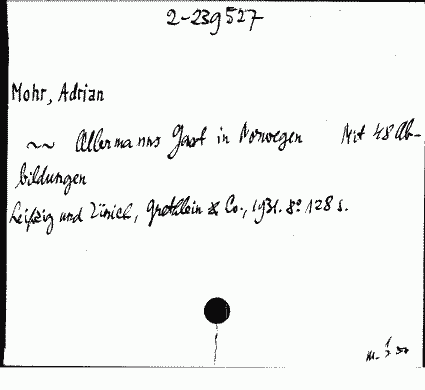 2-239527
Mohr, Adrian
~~ Allermanns Gast in Norwegen Mit 48 Ab-
bildungen
Leipzig und Zürich, Grethlein & Co., 1931. 8° 128 s.